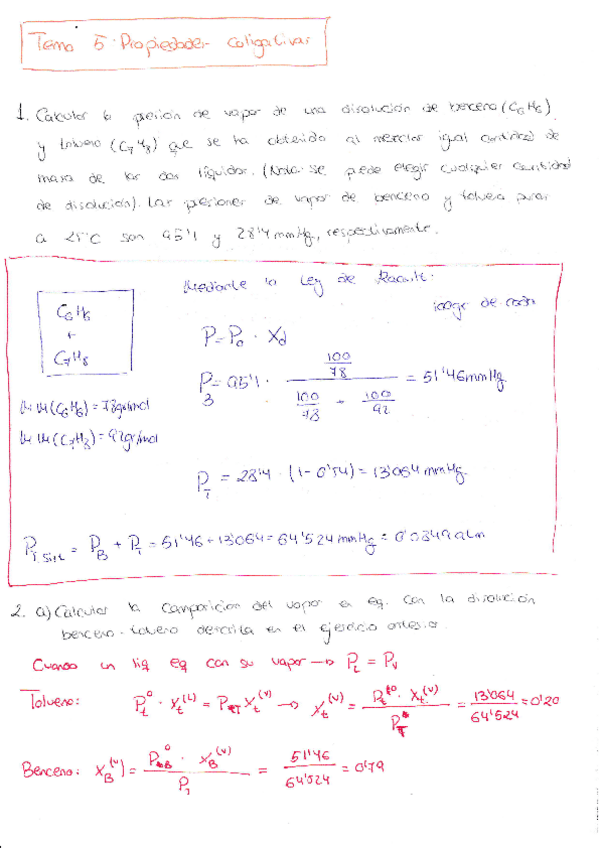 Tema 5: Propiedades coligativas
1. Calcular la presión de vapor de una disolución de benceno (C6H6)
y tolueno (C7H8) que se ha obtenido al mezclar igual cantidad de
masa de los dos líquidos. (Nota: se puede elegir cualquier cantidad
de disolución). Las presiones de vapor de benceno y tolueno puros
a 25°C son 95'1 y 28'4 mmHg, respectivamente.
Mediante la Ley de Raoult:
100gr de cada
C6H6
+
C7H8
P = P0 · Xd
MM(C6H6) = 78gr/mol
MM(C7H8) = 92gr/mol
PB = 95'1 · (100/78) / (100/78 + 100/92) = 51'46 mmHg
PT = 28'4 · (1 - 0'54) = 13'064 mmHg
PT sist = PB + PT = 51'46 + 13'064 = 64'524 mmHg = 0'0849 atm
2. a) Calcular la composición del vapor en eq. con la disolución
benceno-tolueno descrita en el ejercicio anterior.
Cuando un liq eq con su vapor → PL = PV
Tolueno: Pt° · Xt(L) = PT Xt(V) → Xt(V) = Pt° · Xt(V) / PT = 13'064 / 64'524 = 0'20
Benceno: XB(V) = PB° · XB(V) / PT = 51'46 / 64'524 = 0'79